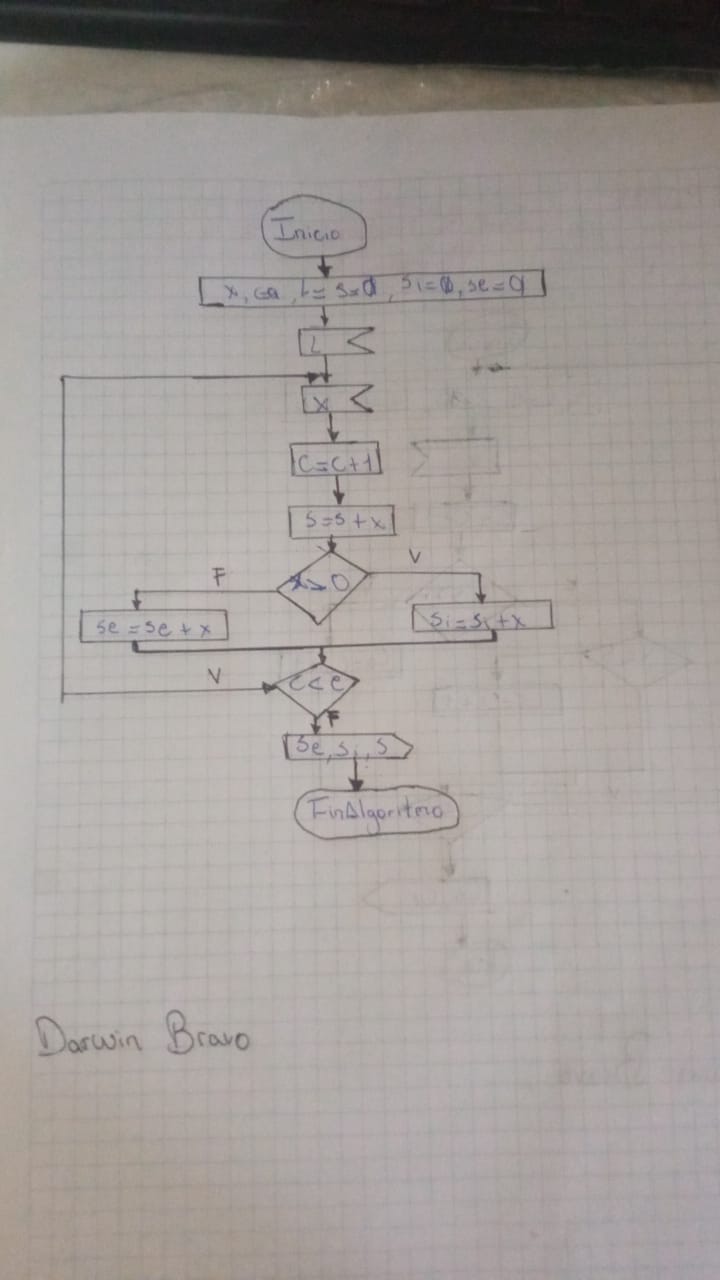 Inicio
x, c=0, L= S=0, Si=0, se=0
L
x
C=C+1
S=S+x
F
x>0
V
se=se+x
Si=Si+x
V
c<e
F
Se, Si, S
FinAlgoritmo
Darwin Bravo